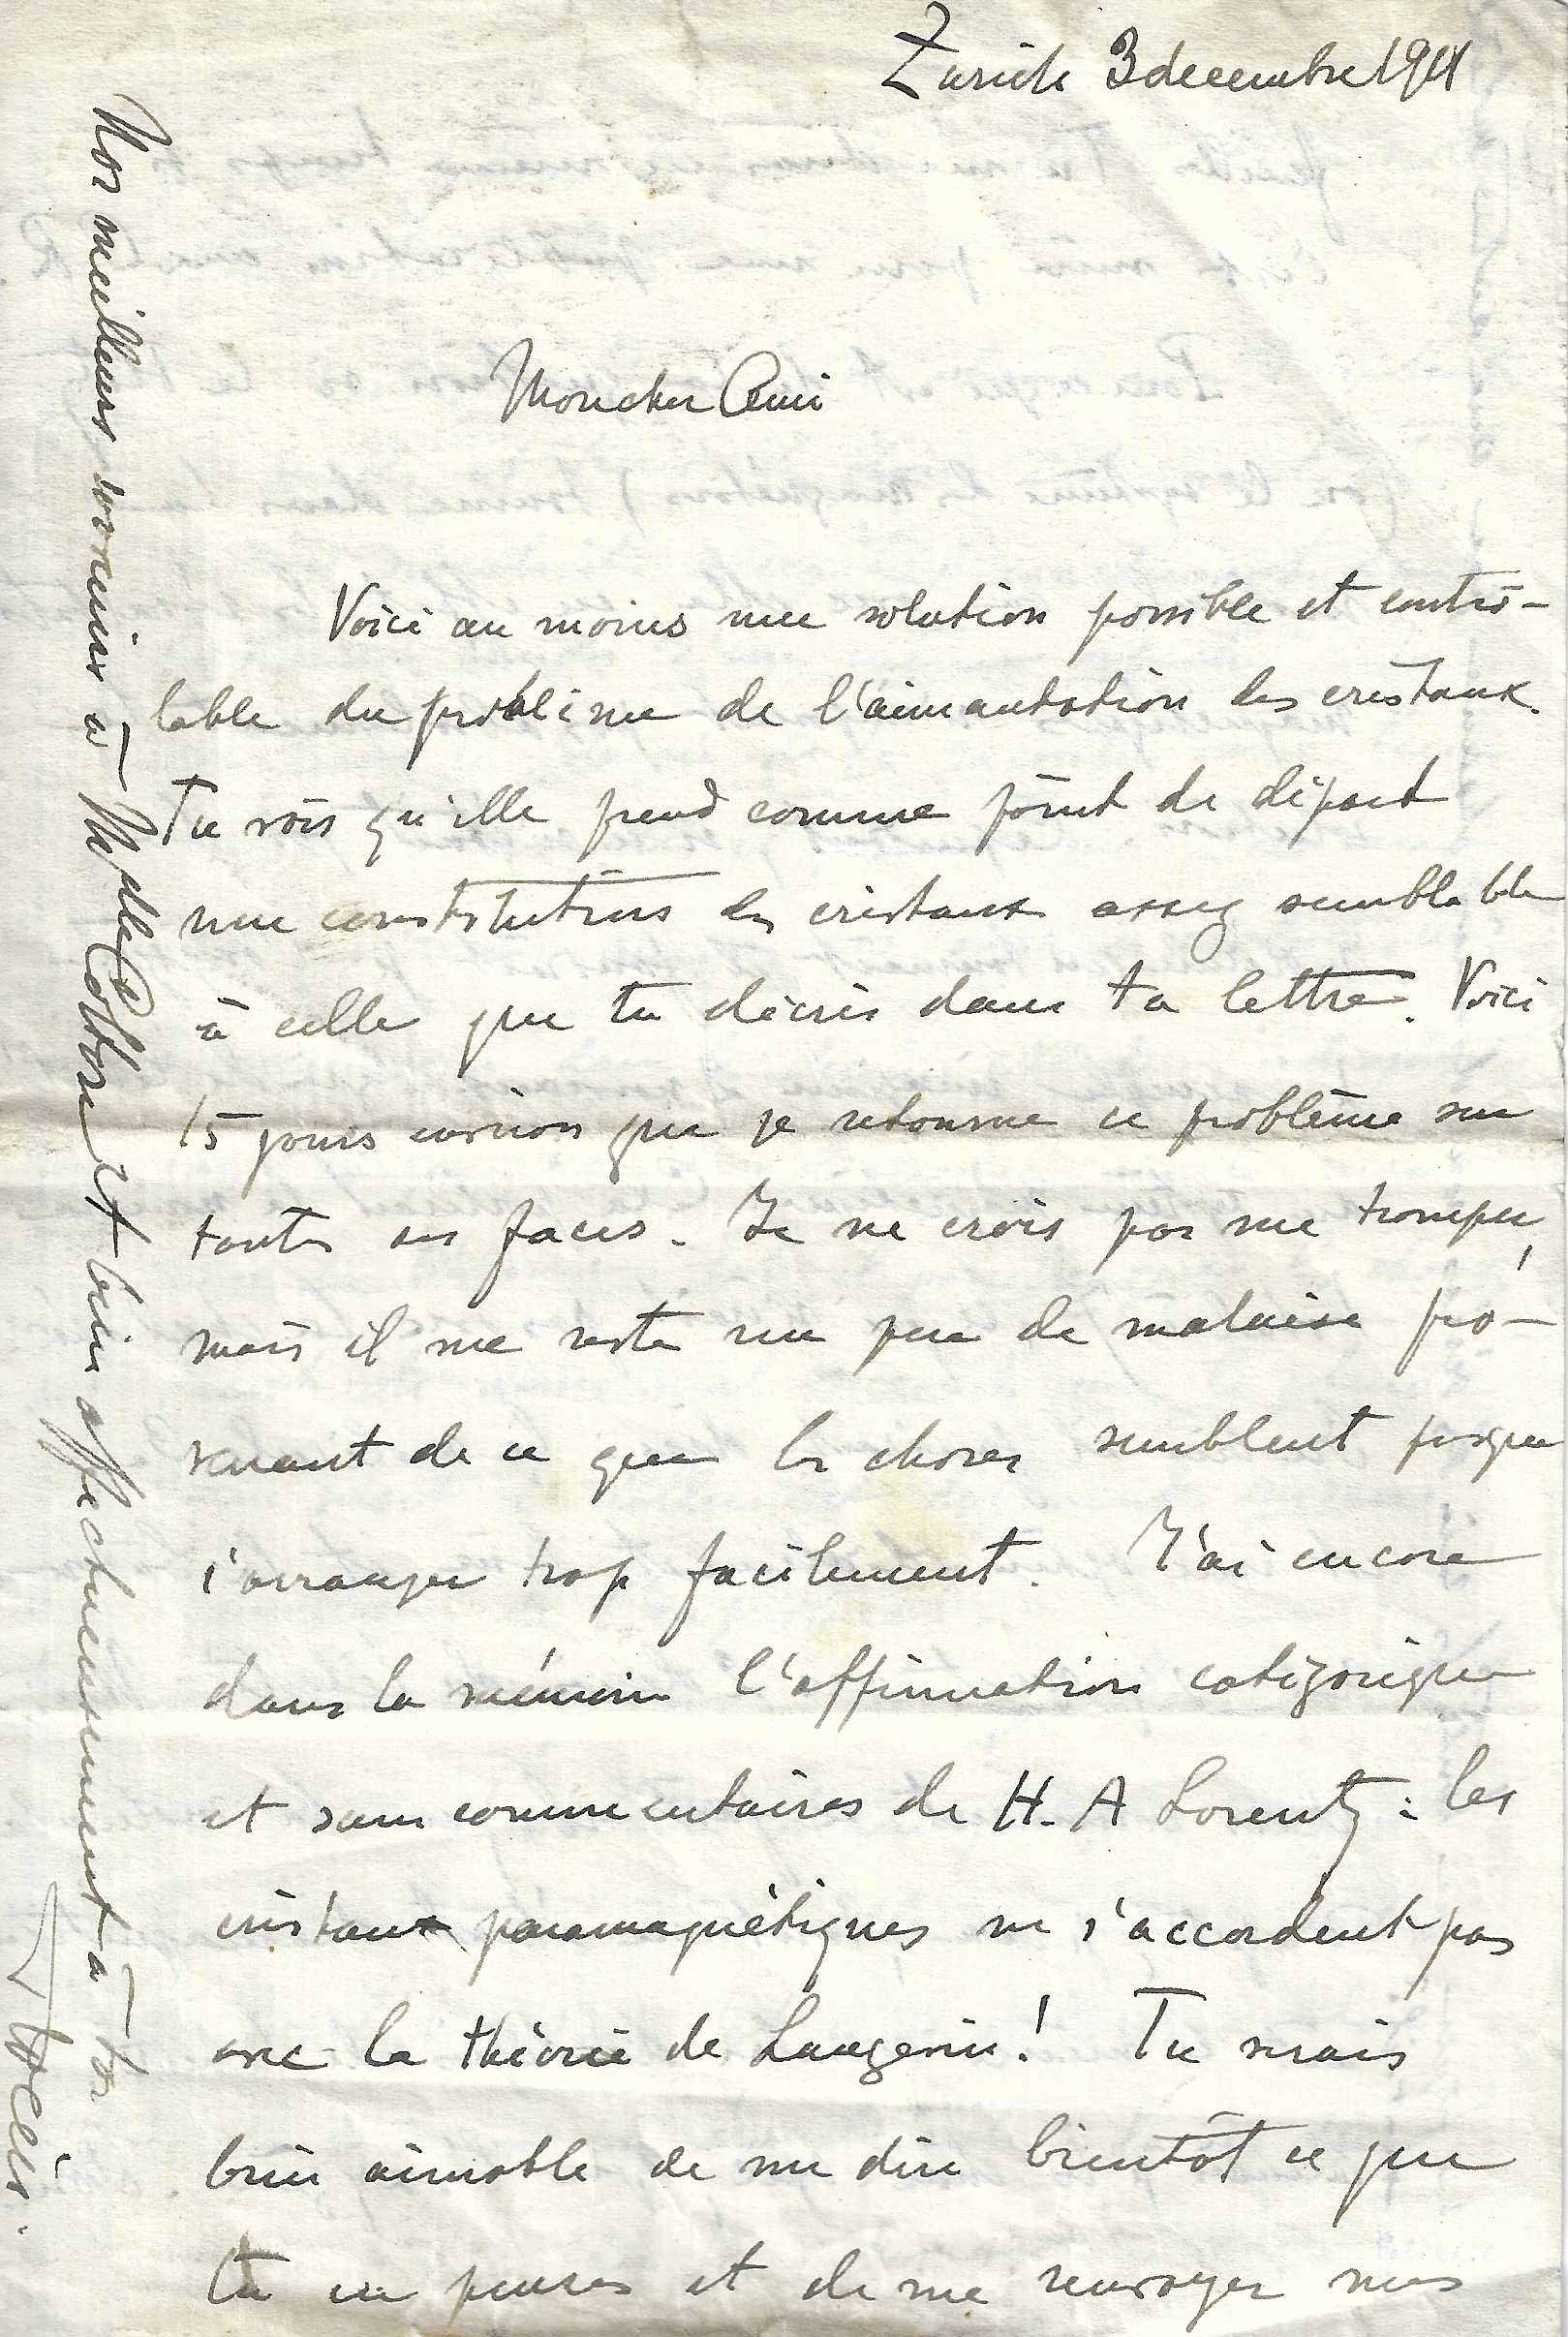 Zurich 3 decembre 1911
Mon cher Ami
Voici au moins une solution possible et contrô-
lable du problème de l'aimantation des cristaux.
Tu vois qu'elle prend comme point de départ
une constitution des cristaux assez semblable
à celle que tu décris dans ta lettre. Voici
15 jours environ que je retourne ce problème sur
toutes ses faces. Je ne crois pas me tromper,
mais il me reste un peu de malaise pro-
venant de ce que les choses semblent presque
s'arranger trop facilement. J'ai encore
dans la mémoire l'affirmation catégorique
et sans commentaires de H. A Lorentz : les
cristaux paramagnétiques ne s'accordent pas
avec la théorie de Langevin! Tu serais
bien aimable de me dire bientôt ce que
tu en penses et de me renvoyer mes
Nos meilleurs souvenirs à Cotton et bien affectueusement à toi
P Weiss.